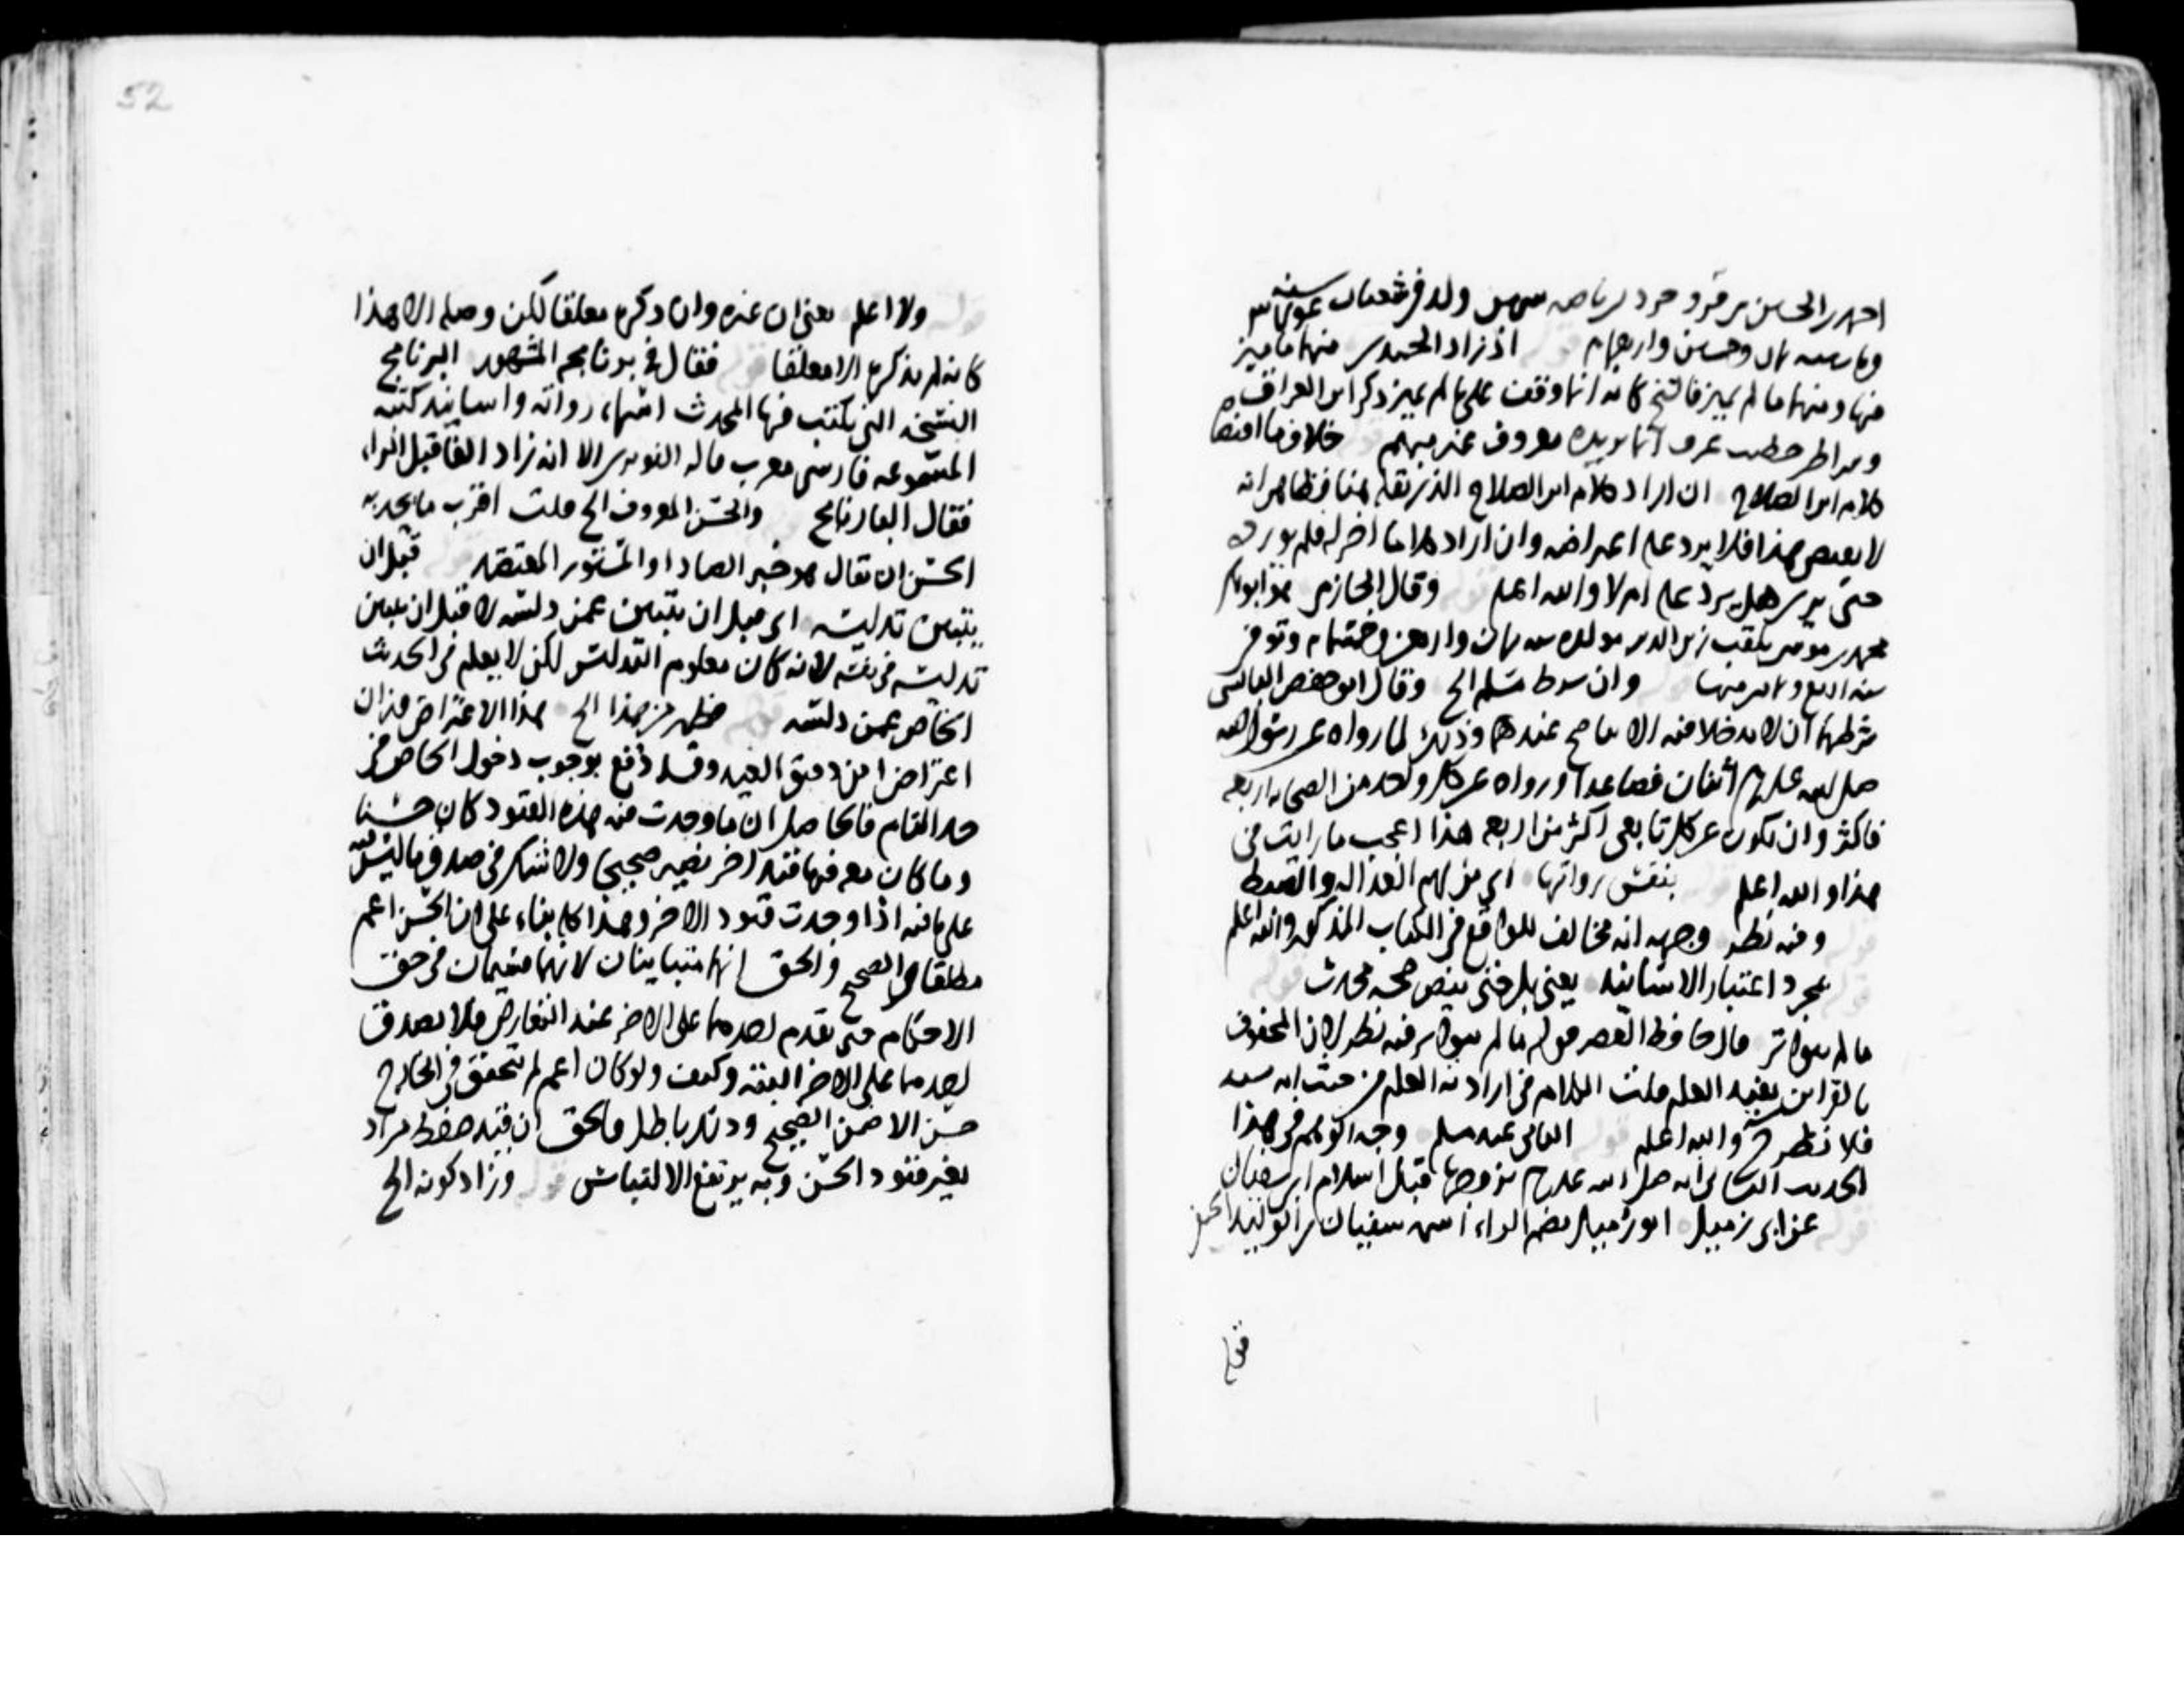 ولد في شعبان سنة
اذ زاد الحميدي منها ما ميز
منها ومنها ما لم يميز فالشيخ كانه انما وقف على ما لم يميز ذكر ابن العراقي
معروف عند مبهم قوله خلاف ما اقتضاه
كلام ابن الصلاح ان اراد كلام ابن الصلاح الذي نقله هنا فظاهر انه
لا يقتضي هذا فلا يرد عليه اعتراضه وان اراد كلاما اخر له فلم يورده
حتى يرى هل يرد عليه ام لا والله اعلم قوله وقال الحازمي هو ابو بكر
محمد بن موسى يلقب زين الدين مولده سنة ثمان واربعين وخمسمائة وتوفي
سنة اربع وثمانين منها قوله وان شرط مسلم الخ وقال ابو حفص الميانشي
شرطهما ان لا يدخلا فيه الا ما صح عندهما وذلك لما رواه عن رسول الله
صلى الله عليه وسلم اثنان فصاعدا ورواه عن كل واحد من الصحابة اربعة
فاكثر وان يكون عن كل تابعي اكثر من اربعة هذا اعجب ما رايت في
هذا والله اعلم قوله بنفس رواتها اي من لهم العدالة والضبط
قوله وفيه نظر وجهه انه مخالف للواقع في الكتاب المذكور والله اعلم
قوله بمجرد اعتبار الاسانيد يعني بل حتى ينص صحة محدث قوله
ما لم يتواتر قال حافظ العصر قوله ما لم يتواتر فيه نظر لان المحفوف
بالقرائن يفيد العلم قلت الكلام في ارادته العلم من حيث انه سند
فلا نظر ح والله اعلم قوله الثاني عند مسلم وجه الوهم في هذا
الحديث الثاني انه صلى الله عليه وسلم تزوجها قبل اسلام ابي سفيان
قوله عن ابي زميل ابو زميل بضم الزاء اسمه سفيان بن الوليد الحنفي
فقال
52
قوله ولا اعلم يعني ان غيره وان ذكره معلقا لكن وصله الا هذا
كانه لم يذكره الا معلقا قوله فقال في برنامجه المشهور البرنامج
النسخة التي يكتب فيها المحدث اسماء رواته واسانيد كتبه
المسموعة فارسي معرب قاله النووي الا انه زاد الفا قبل الراء
فقال البارنامج قوله والحسن المعروف الخ قلت اقرب ما يحد به
الحسن ان يقال هو خبر الصادق او المستور المعتضد قوله قبل ان
يتبين تدليسه اي قبل ان يتبين عمن دلسه لا قبل ان يتبين
تدليسه في نفسه لانه كان معلوم التدليس لكن لا يعلم في الحديث
الخاص عمن دلسه قوله فظهر من هذا الخ هذا الاعتراض من ان
اعتراض ابن دقيق العيد وقد دفع بوجوب دخول الخاص في
حد العام فالحاصل ان ما وجدت فيه هذه القيود كان حسنا
وما كان معه فيها قيد اخر يصير صحيحا ولا شك في صدق ما ليس فيه
على ما فيه اذا وجدت قيود الاخر وهذا كله بناء على ان الحسن اعم
مطلقا من الصحيح والحق انهما متباينان لانهما قسيمان في حق
الاحكام حتى يقدم احدهما على الاخر عند التعارض فلا يصدق
احدهما على الاخر البتة وكيف ولو كان اعم لم يتحقق في الخارج
حسن الا ضمن الصحيح وذلك باطل فالحق ان قيد ضبط مراد
بغير قيود الحسن وبه يرتفع الالتباس قوله وزاد كونه الخ